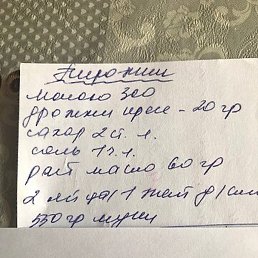 Пирожки
молоко 300
дрожжи прес - 20 гр
сахар 2 ст. л.
соль 1 ч. л.
раст масло 60 гр
2 яйца / 1 желт д/см
550 гр муки